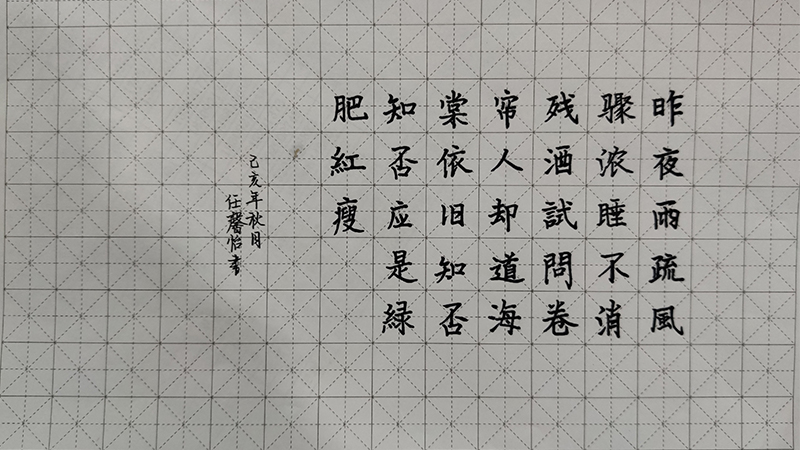 昨夜雨疏風
驟浓睡不消
残酒試問卷
帘人却道海
棠依旧知否
知否应是緑
肥紅瘦
己亥年秋月
任馨怡書